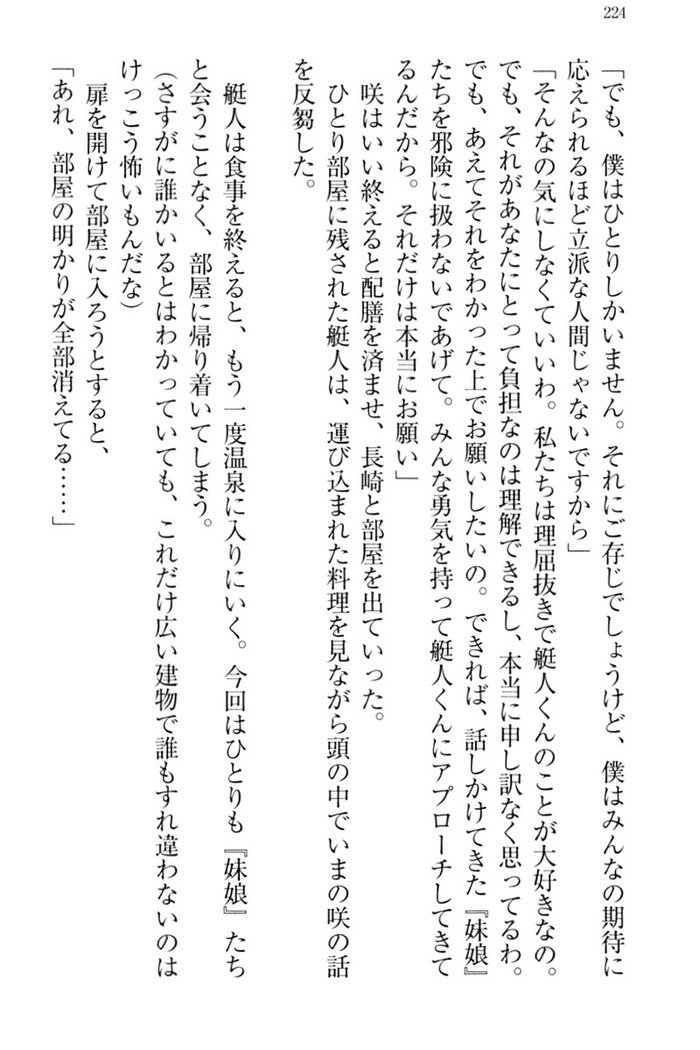 224
「でも、僕はひとりしかいません。それにご存じでしょうけど、僕はみんなの期待に
応えられるほど立派な人間じゃないですから」
「そんなの気にしなくていいわ。私たちは理屈抜きで艇人くんのことが大好きなの。
でも、それがあなたにとって負担なのは理解できるし、本当に申し訳なく思ってるわ。
でも、あえてそれをわかった上でお願いしたいの。できれば、話しかけてきた『妹娘』
たちを邪険に扱わないであげて。みんな勇気を持って艇人くんにアプローチしてきて
るんだから。それだけは本当にお願い」
咲はいい終えると配膳を済ませ、長崎と部屋を出ていった。
ひとり部屋に残された艇人は、運び込まれた料理を見ながら頭の中でいまの咲の話
を反芻した。
艇人は食事を終えると、もう一度温泉に入りにいく。今回はひとりも『妹娘』たち
と会うことなく、部屋に帰り着いてしまう。
(さすがに誰かいるとはわかっていても、これだけ広い建物で誰もすれ違わないのは
けっこう怖いもんだな)
扉を開けて部屋に入ろうとすると、
「あれ、部屋の明かりが全部消えてる……」